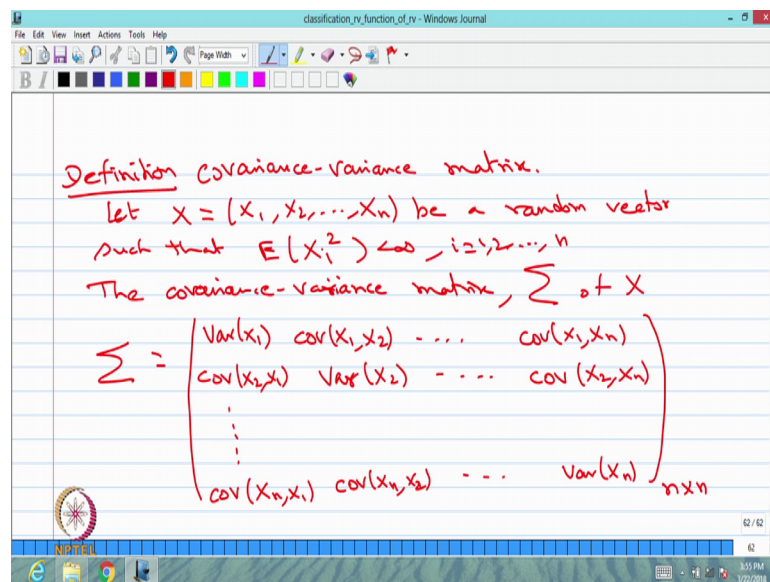 classification_rv_function_of_rv - Windows Journal
File Edit View Insert Actions Tools Help
Page Width
B I
Definition covariance-variance matrix.
Let X = (X1, X2, ..., Xn) be a random vector
such that E(Xi²) < ∞, i=1,2..., n
The covariance-variance matrix, Σ of X
Σ = Var(X1) cov(X1,X2) - .... cov(X1,Xn)
cov(X2,X1) Var(X2) - - - . cov(X2,Xn)
cov(Xn,X1) cov(Xn,X2) - - . Var(Xn) n×n
NPTEL
62 / 62
62
3:55 PM